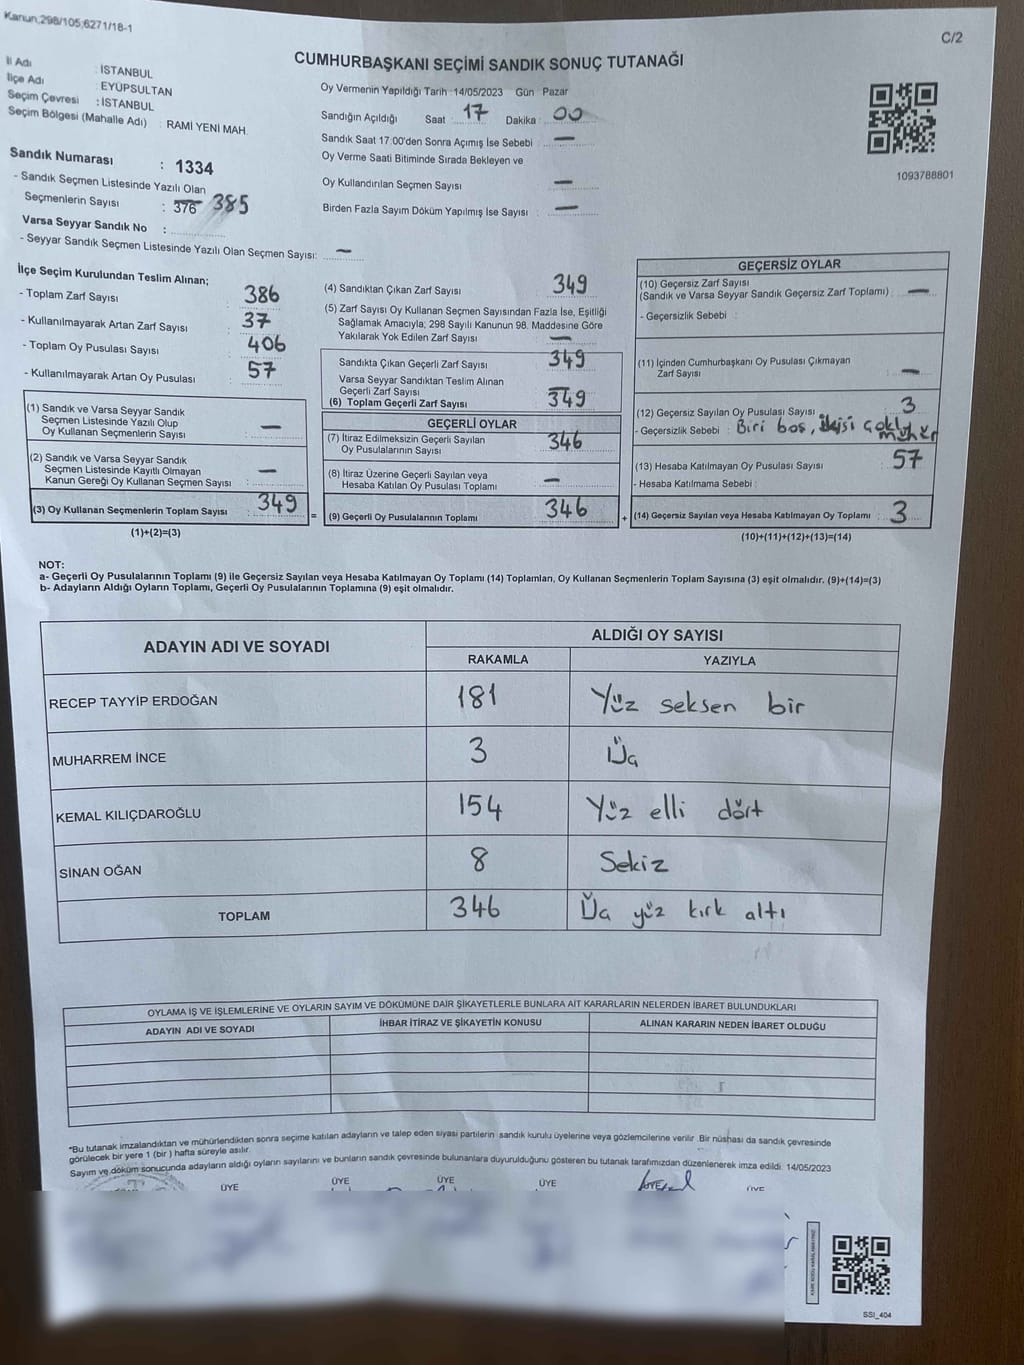 Kanun;298/105;6271/18-1
C/2
CUMHURBAŞKANI SEÇİMİ SANDIK SONUÇ TUTANAĞI
İl Adı : İSTANBUL
İlçe Adı : EYÜPSULTAN
Seçim Çevresi : İSTANBUL
Seçim Bölgesi (Mahalle Adı) : RAMİ YENİ MAH.
Sandık Numarası : 1334
- Sandık Seçmen Listesinde Yazılı Olan
Seçmenlerin Sayısı : 376 385
Varsa Seyyar Sandık No :
- Seyyar Sandık Seçmen Listesinde Yazılı Olan Seçmen Sayısı: —
Oy Vermenin Yapıldığı Tarih :14/05/2023 Gün Pazar
Sandığın Açıldığı Saat 17 Dakika 00
Sandık Saat 17:00'den Sonra Açımış İse Sebebi —
Oy Verme Saati Bitiminde Sırada Bekleyen ve
Oy Kullandırılan Seçmen Sayısı —
Birden Fazla Sayım Döküm Yapılmış İse Sayısı : —
1093788801
İlçe Seçim Kurulundan Teslim Alınan;
- Toplam Zarf Sayısı : 386
- Kullanılmayarak Artan Zarf Sayısı : 37
- Toplam Oy Pusulası Sayısı : 406
- Kullanılmayarak Artan Oy Pusulası : 57
(1) Sandık ve Varsa Seyyar Sandık
Seçmen Listesinde Yazılı Olup
Oy Kullanan Seçmenlerin Sayısı : —
(2) Sandık ve Varsa Seyyar Sandık
Seçmen Listesinde Kayıtlı Olmayan
Kanun Gereği Oy Kullanan Seçmen Sayısı : —
(3) Oy Kullanan Seçmenlerin Toplam Sayısı : 349
(1)+(2)=(3)
(4) Sandıktan Çıkan Zarf Sayısı 349
(5) Zarf Sayısı Oy Kullanan Seçmen Sayısından Fazla İse, Eşitliği
Sağlamak Amacıyla; 298 Sayılı Kanunun 98. Maddesine Göre
Yakılarak Yok Edilen Zarf Sayısı —
Sandıkta Çıkan Geçerli Zarf Sayısı 349
Varsa Seyyar Sandıktan Teslim Alınan
Geçerli Zarf Sayısı —
(6) Toplam Geçerli Zarf Sayısı 349
GEÇERLİ OYLAR
(7) İtiraz Edilmeksizin Geçerli Sayılan
Oy Pusulalarının Sayısı 346
(8) İtiraz Üzerine Geçerli Sayılan veya
Hesaba Katılan Oy Pusulası Toplamı —
= (9) Geçerli Oy Pusulalarının Toplamı 346 +
GEÇERSİZ OYLAR
(10) Geçersiz Zarf Sayısı
(Sandık ve Varsa Seyyar Sandık Geçersiz Zarf Toplamı) : —
- Geçersizlik Sebebi :
(11) İçinden Cumhurbaşkanı Oy Pusulası Çıkmayan
Zarf Sayısı —
(12) Geçersiz Sayılan Oy Pusulası Sayısı 3
- Geçersizlik Sebebi : Biri boş, ikisi çoklu
mühür
(13) Hesaba Katılmayan Oy Pusulası Sayısı 57
- Hesaba Katılmama Sebebi :
(14) Geçersiz Sayılan veya Hesaba Katılmayan Oy Toplamı : 3
(10)+(11)+(12)+(13)=(14)
NOT:
a- Geçerli Oy Pusulalarının Toplamı (9) ile Geçersiz Sayılan veya Hesaba Katılmayan Oy Toplamı (14) Toplamları, Oy Kullanan Seçmenlerin Toplam Sayısına (3) eşit olmalıdır. (9)+(14)=(3)
b- Adayların Aldığı Oyların Toplamı, Geçerli Oy Pusulalarının Toplamına (9) eşit olmalıdır.
ADAYIN ADI VE SOYADI ALDIĞI OY SAYISI
RAKAMLA YAZIYLA
RECEP TAYYİP ERDOĞAN 181 Yüz seksen bir
MUHARREM İNCE 3 Üç
KEMAL KILIÇDAROĞLU 154 Yüz elli dört
SİNAN OĞAN 8 Sekiz
TOPLAM 346 Üç yüz kırk altı
OYLAMA İŞ VE İŞLEMLERİNE VE OYLARIN SAYIM VE DÖKÜMÜNE DAİR ŞİKAYETLERLE BUNLARA AİT KARARLARIN NELERDEN İBARET BULUNDUKLARI
ADAYIN ADI VE SOYADI İHBAR İTİRAZ VE ŞİKAYETİN KONUSU ALINAN KARARIN NEDEN İBARET OLDUĞU
*Bu tutanak imzalandıktan ve mühürlendikten sonra seçime katılan adayların ve talep eden siyasi partilerin sandık kurulu üyelerine veya gözlemcilerine verilir. Bir nüshası da sandık çevresinde
görülecek bir yere 1 (bir ) hafta süreyle asılır.
Sayım ve döküm sonucunda adayların aldığı oyların sayılarını ve bunların sandık çevresinde bulunanlara duyurulduğunu gösteren bu tutanak tarafımızdan düzenlenerek imza edildi. 14/05/2023
ÜYE ÜYE ÜYE ÜYE ÜYE
SSI_404